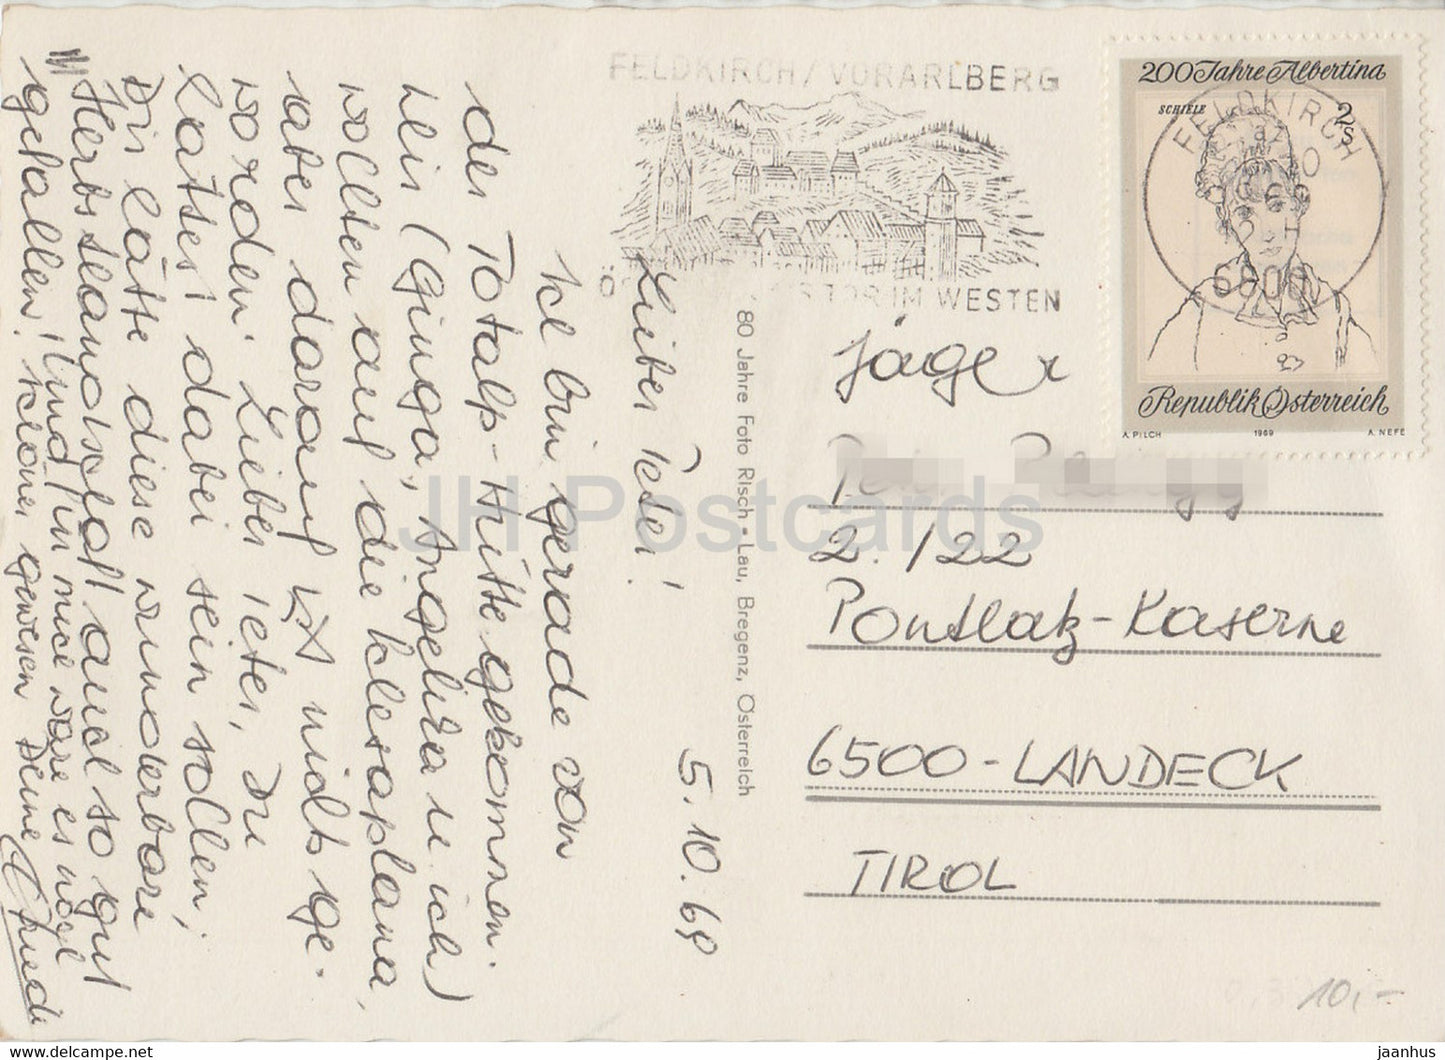 FELDKIRCH / VORARLBERG
TOR IM WESTEN
200 Jahre Albertina
SCHIELE
2s
FELDKIRCH
6800
Republik Österreich
A. PILCH 1969 A. NEFE
80 Jahre Foto Risch-Lau, Bregenz, Österreich
5.10.69
Lieber Peter!
Ich bin gerade von
der Totalp-Hütte gekommen.
Wir (Ginga, Angelika u ich)
wollten auf die Schesaplana,
aber darauf ist nichts ge-
worden. Lieber Peter, Du
hattest dabei sein sollen,
Dir hätte diese wunderbare
Herbstlandschaft auch so gut
gefallen! Und für mich wäre es noch
schöner gewesen Deine
Jäger
2./22
Pontlatz-Kaserne
6500-LANDECK
TIROL
10,-
JH Postcards
www.hippostcard.com/store/jaanhus